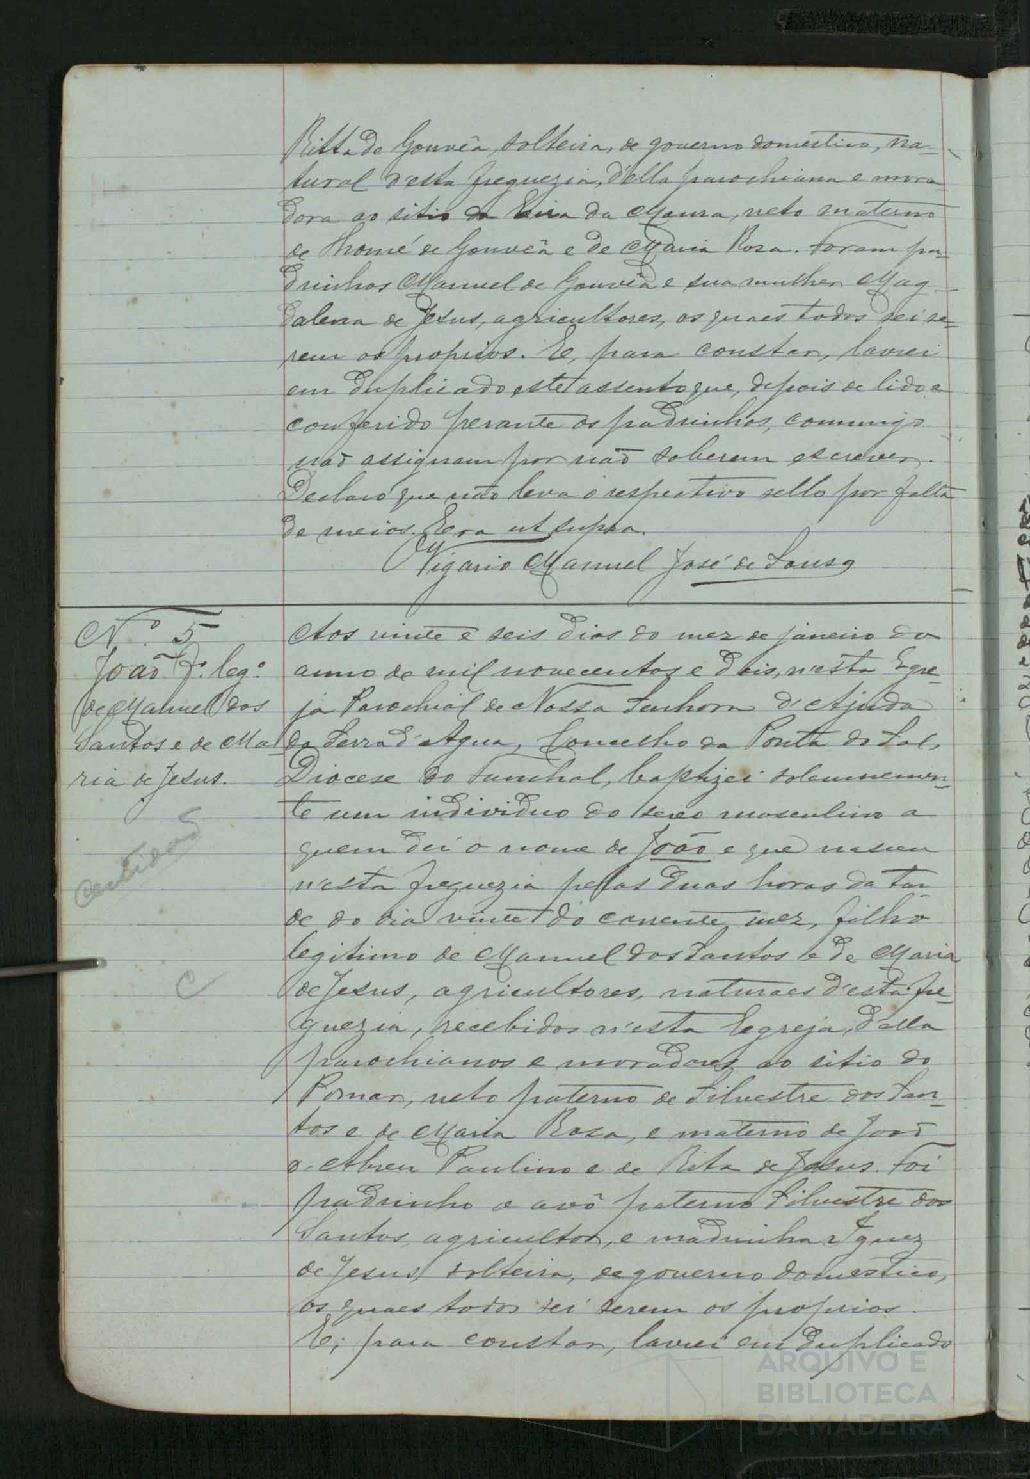 Ritta de Gouvêa, solteira, de governo domestico, na-
tural desta freguezia, d'ella parochiana e mora
dora ao sitio da Eira da Moura, neto materno
de Thomé de Gouvêa e de Maria Roza. Foram pa
drinhos Manuel de Gouvêa e sua mulher Mag-
dalena de Jesus, agricultores, os quaes todos sei se-
rem os proprios. E, para constar, lavrei
em duplicado este assento que, depois de lido e
conferido perante os padrinhos, commigo
não assignam por não saberem escrever.
Declaro que não leva o respectivo sello por falta
de meios. Era ut supra.
Vigario Manuel José de Sousa
Nº 5
João fº. legº.
de Manuel dos
Santos e de Ma
ria de Jesus.
Aos vinte e seis dias do mez de janeiro do
anno de mil novecentos e dois, n'esta Egre-
ja Parochial de Nossa Senhora d'Ajuda
da Serra d'Agua, Concelho da Ponta do Sol,
Diocese do Funchal, baptizei solemnemen-
te um individuo do sexo masculino a
quem dei o nome de João e que nasceu
n'esta freguezia pelas duas horas da tar
de do dia vinte do corrente mez, filho
legitimo de Manuel dos Santos e de Maria
de Jesus, agricultores, naturaes d'esta fre-
guezia, recebidos n'esta Egreja, d'ella
parochianos e moradores ao sitio do
Pomar, neto paterno de Silvestre dos San-
tos e de Maria Rosa, e materno de João
d'Abreu Paulino e de Rita de Jesus. Foi
padrinho o avô paterno Silvestre dos
Santos, agricultor, e madrinha Ignez
de Jesus, solteira, de governo domestico,
os quaes todos sei serem os proprios.
E, para constar, lavrei em duplicado
C
ARQUIVO E
BIBLIOTECA
DA MADEIRA